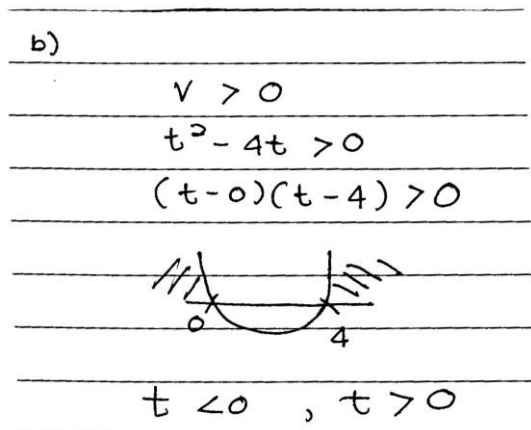 b)
v > 0
t² - 4t > 0
(t-0)(t-4) > 0
0 4
t < 0 , t > 0